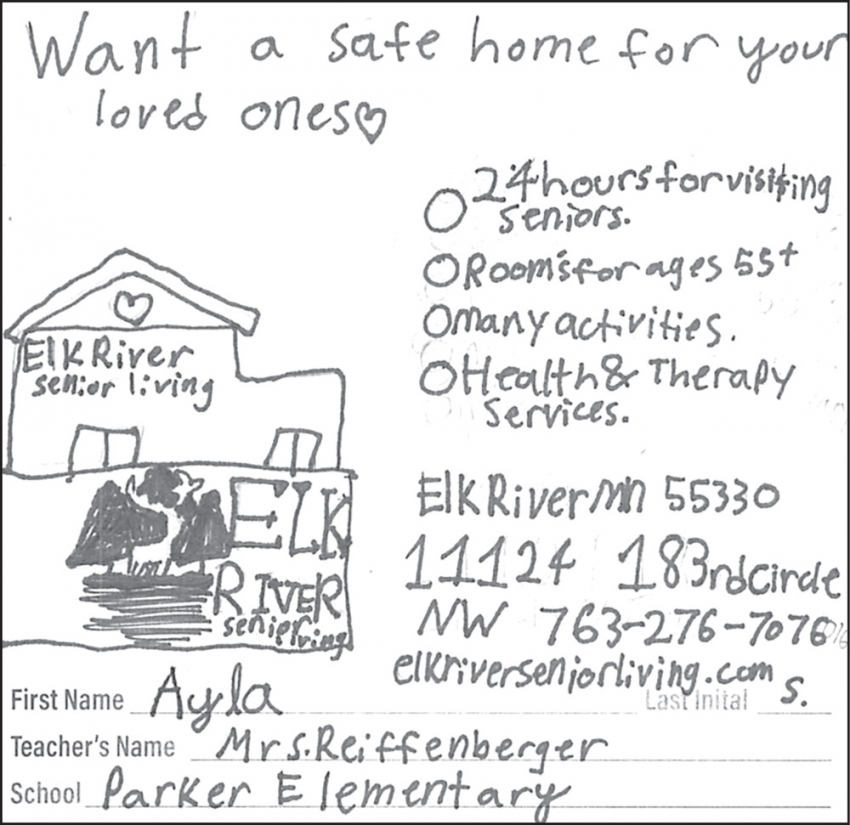 Want a safe home for your
loved ones
24 hours for visiting
seniors.
Rooms for ages 55+
many activities.
Health & Therapy
Services.
Elk River
senior living
ELK
RIVER
senior living
Elk River mn 55330
11124 183rd circle
NW 763-276-7076
elkriverseniorliving.com
First Name Ayla Last Inital S.
Teacher's Name Mrs. Reiffenberger
School Parker Elementary